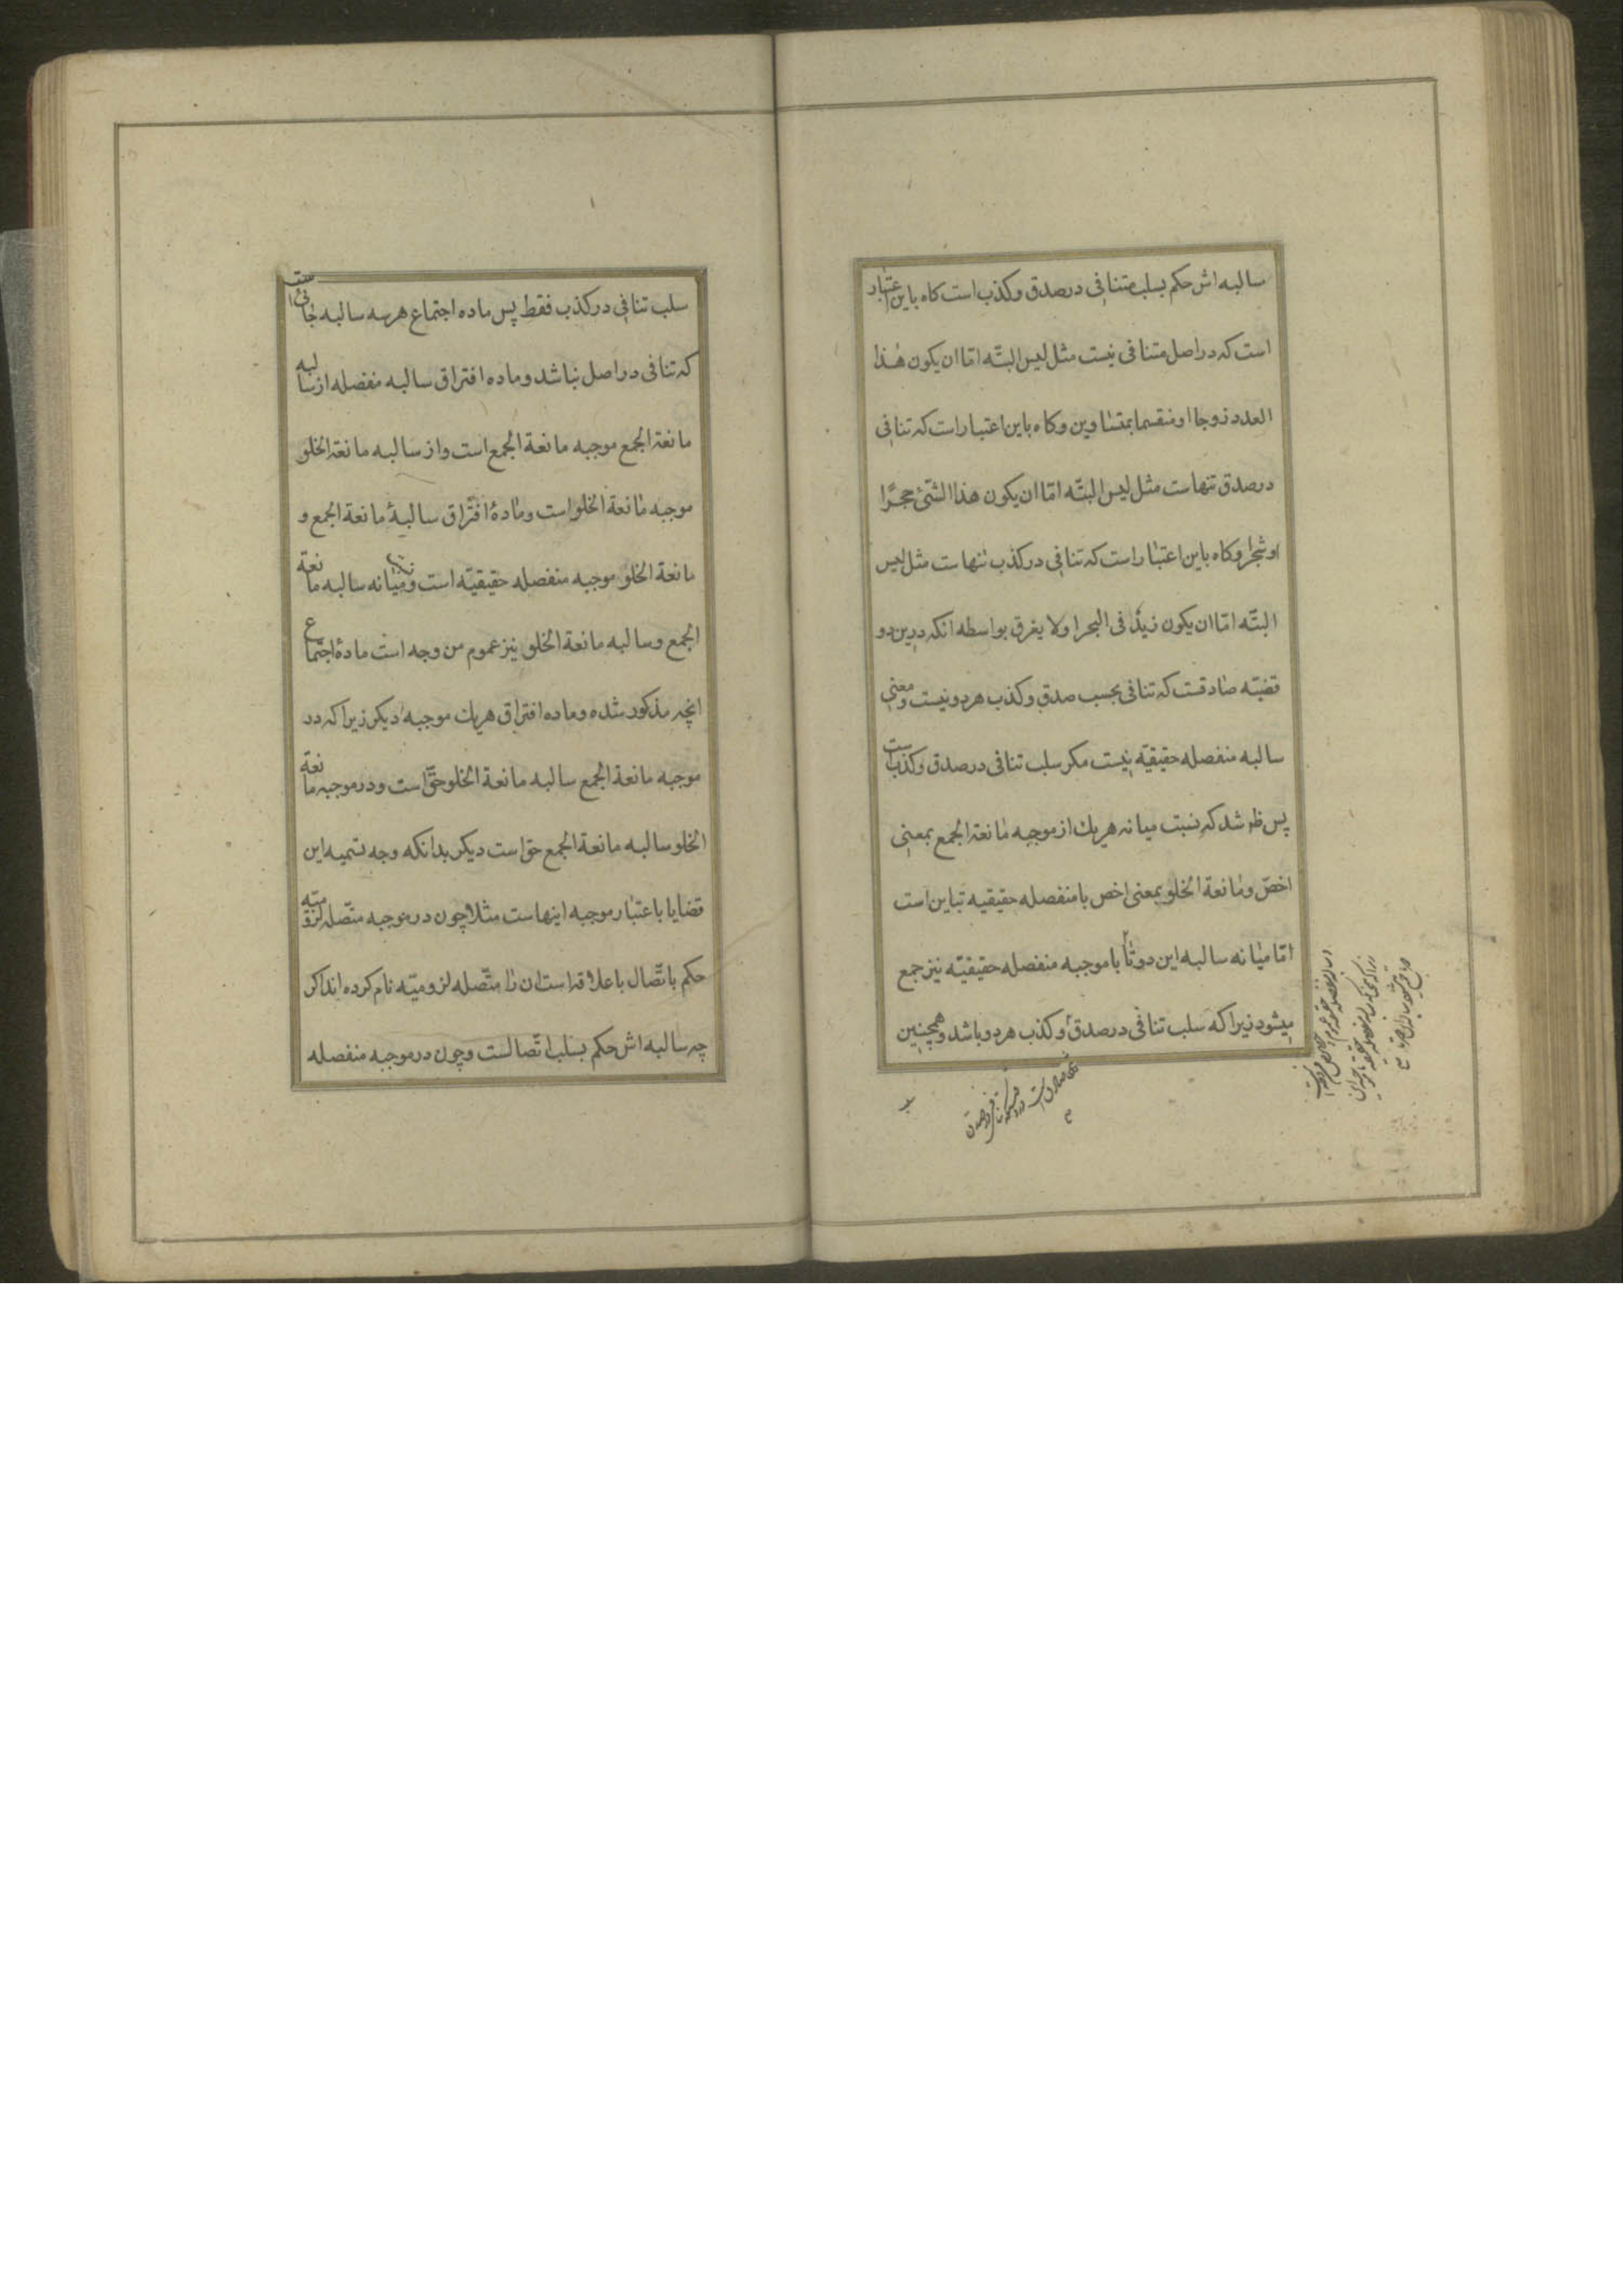 سالبه اش حکم بسلب متنافی در صدق و کذب است کاه باین اعتبار
است که در اصل متنافی نیست مثل لیس البتّه امّا ان یکون هٰذا
العدد زوجا او منقسما بمتساوین و کاه باین اعتبار است که تنافی
در صدق تنهاست مثل لیس البتّه امّا ان یکون هذا الشّیٔ حجرًا
او شجرا و کاه باین اعتبار است که تنافی در کذب تنهاست مثل لیس
البتّه امّا ان یکون زیدٌ فی البحر او لا یغرق بواسطه انکه درین دو
قضیّه صادقست که تنافی بحسب صدق و کذب هر دو نیست و معنی
سالبه منفصله حقیقیّه نیست مکر سلب تنافی در صدق و کذب است
پس ظ شد که نسبت میانه هریک از موجبه مانعة الجمع بمعنی
اخصّ و مانعة الخلو بمعنی اخص با منفصله حقیقیه تباین است
امّا میانه سالبه این دو تا با موجبه منفصله حقیقیّه نیز جمع
میشود زیرا که سلب تنافی در صدق و کذب هر دو باشد و همچنین
سلب تنافی در کذب فقط پس ماده اجتماع هر سه سالبه جائی است
که تنافی در اصل نباشد و ماده افتراق سالبه منفصله از سالبه
مانعة الجمع موجبه مانعة الجمع است و از سالبه مانعة الخلو
موجبه مانعة الخلو است و مادهٔ افتراق سالبهٔ مانعة الجمع و
مانعة الخلو موجبه منفصله حقیقیّه است و میانه سالبه مانعة
الجمع و سالبه مانعة الخلو نیز عموم من وجه است مادهٔ اجتماع
انچه مذکور شده و ماده افتراق هریک موجبه دیکر زیرا که در
موجبه مانعة الجمع سالبه مانعة الخلو حقّ است و در موجبه مانعة
الخلو سالبه مانعة الجمع حق است دیکر بدانکه وجه تسمیه این
قضایا باعتبار موجبه اینهاست مثلا چون در موجبه متّصله لزومیّه
حکم باتّصال با علاقه است ان را متّصله لزومیّه نام کرده اند اکر
چه سالبه اش حکم بسلب اتّصالست و چون در موجبه منفصله